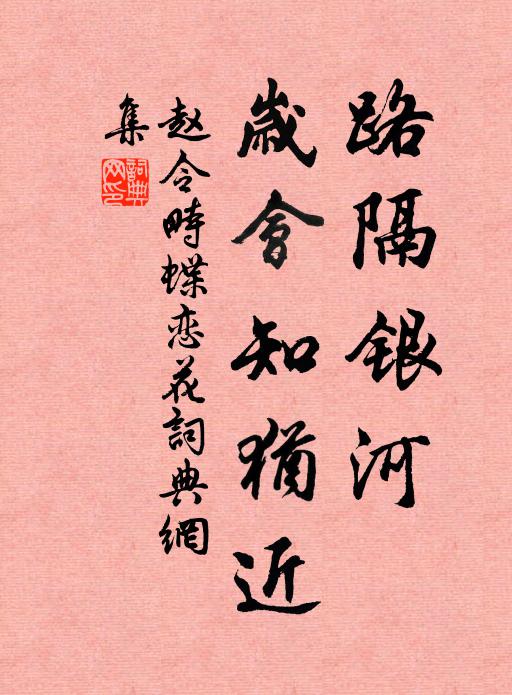 路隔銀河
歲會知猶近
赵令時蝶恋花詞典網
集
詞典
网印